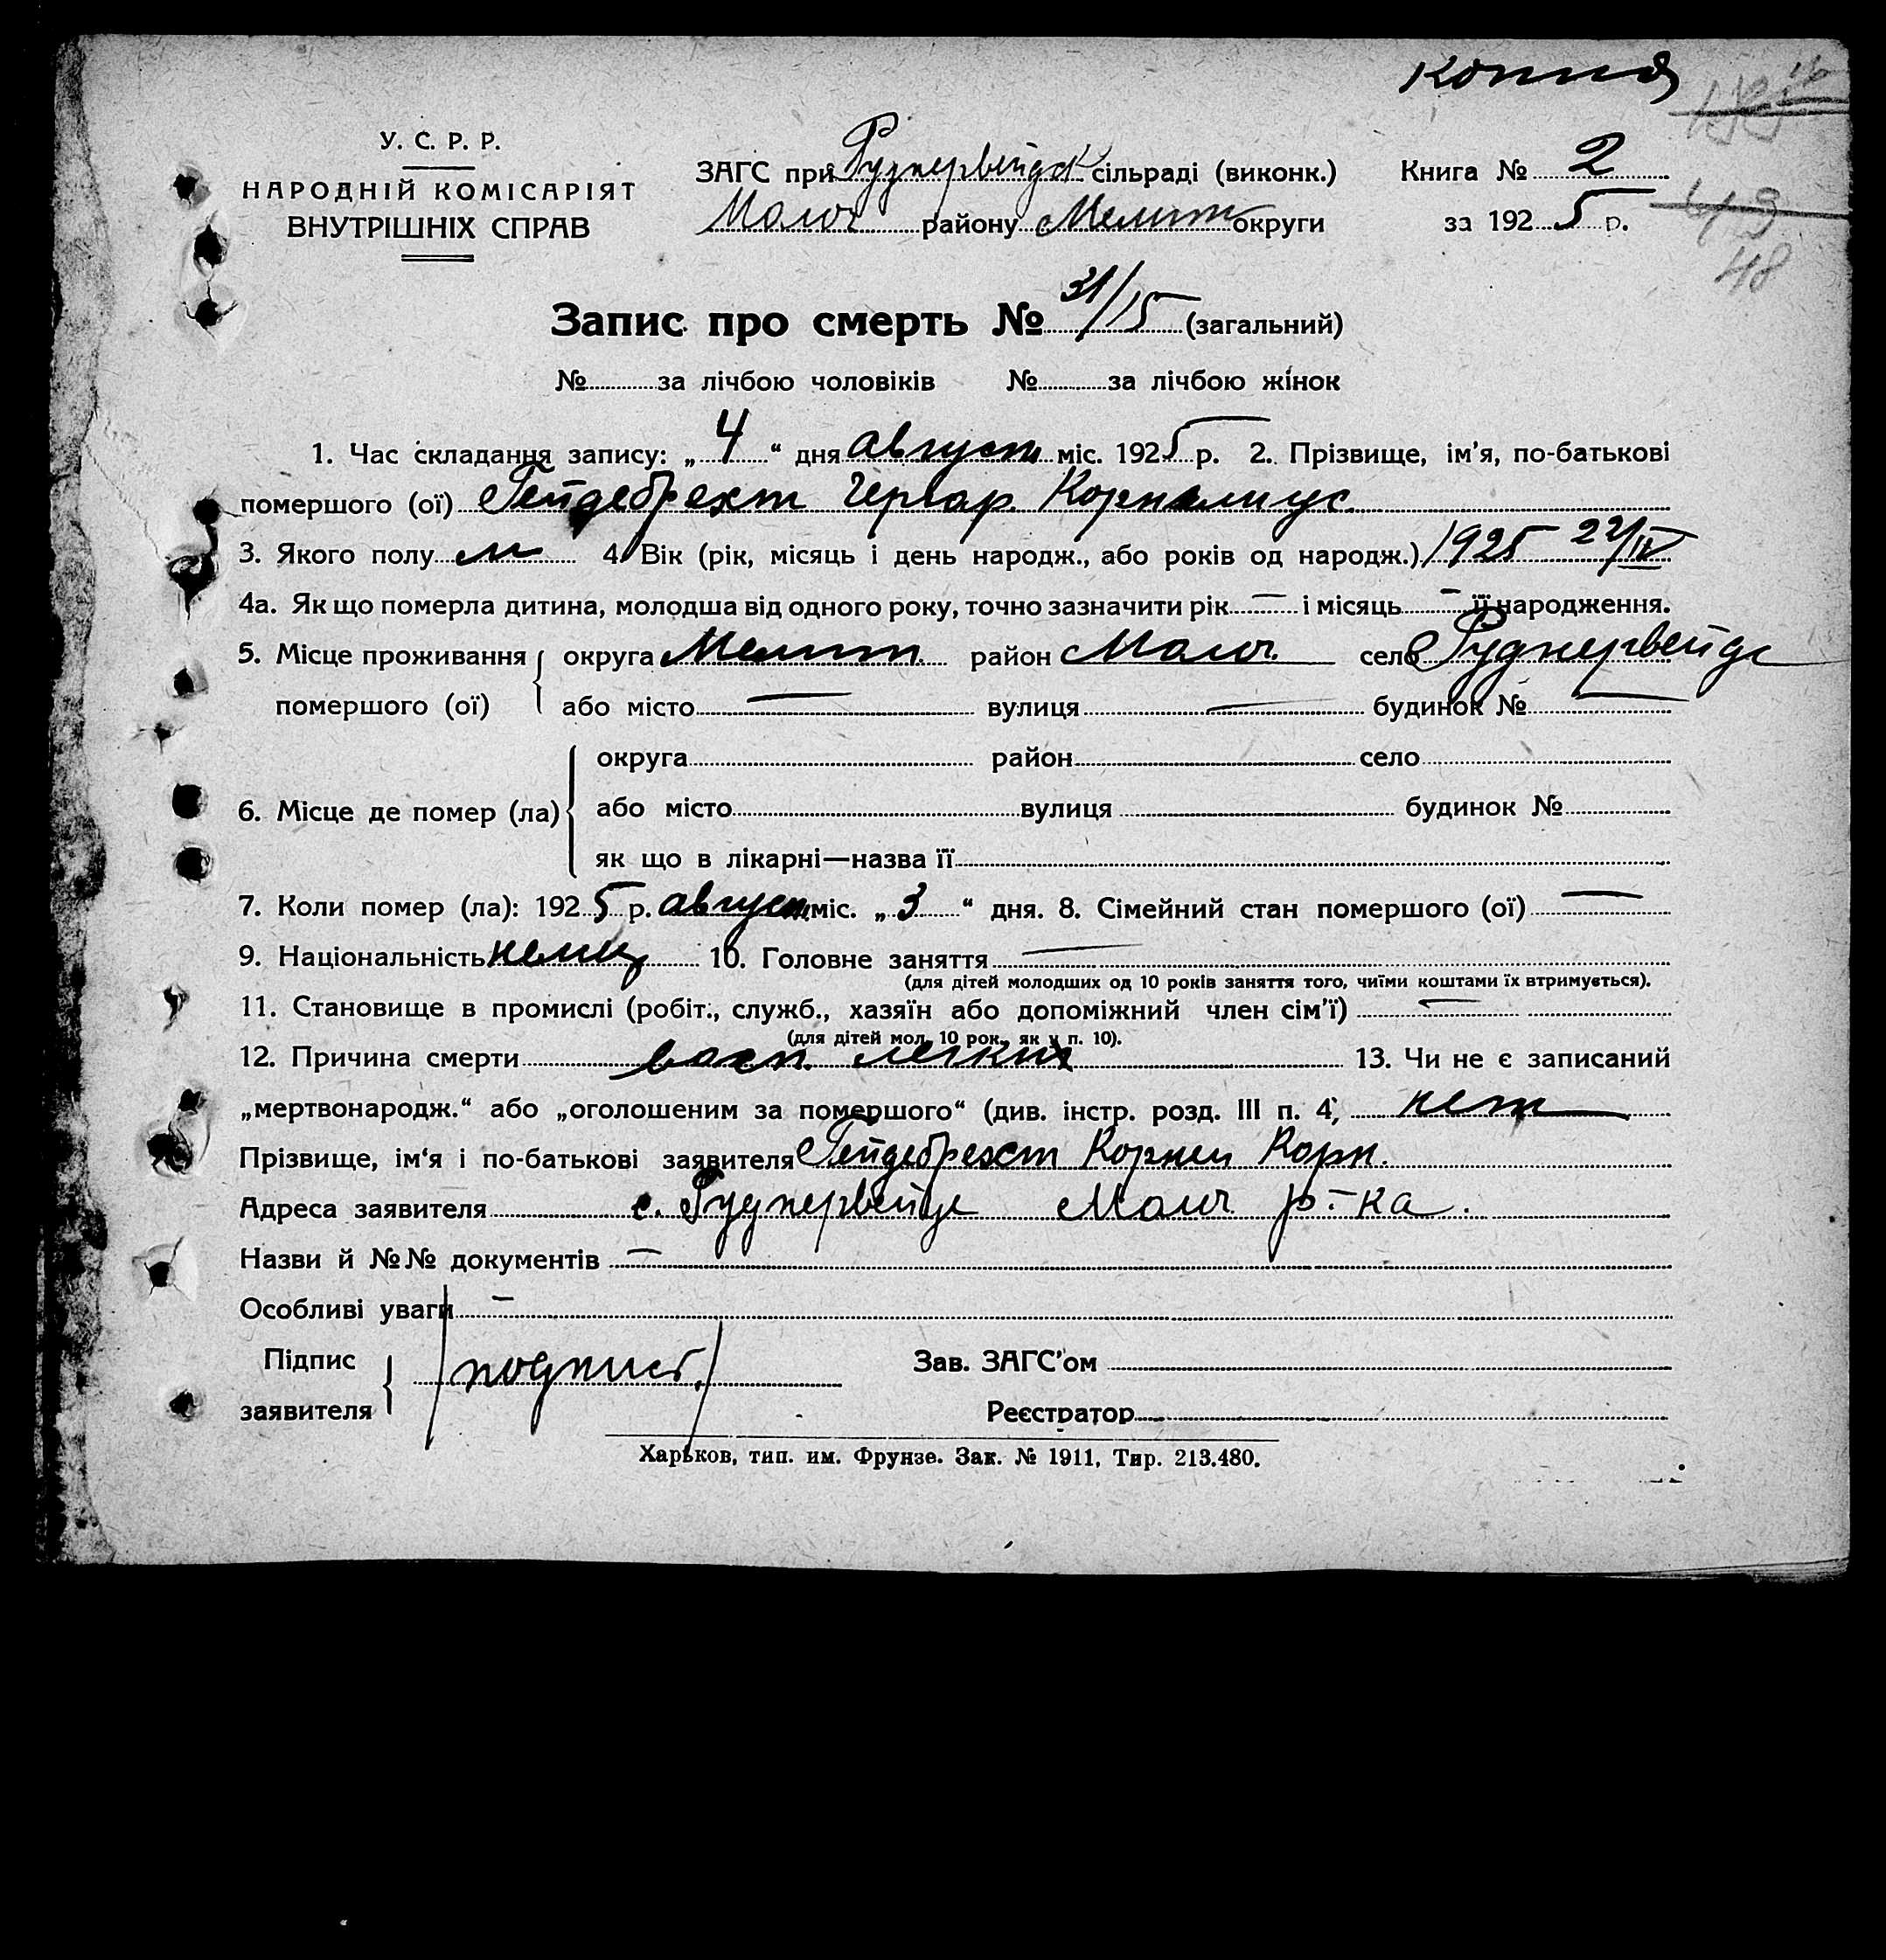 копия
У. С. Р. Р.
НАРОДНІЙ КОМІСАРІЯТ
ВНУТРІШНІХ СПРАВ
ЗАГС при Руднервейдск сільраді (виконк.)
Молоч району Мелит округи
Книга № 2
за 1925 р.
48
Запис про смерть № 31/15 (загальний)
№ за лічбою чоловіків № за лічбою жінок
1. Час складання запису: „ 4 “ дня август міс. 1925 р. 2. Прізвище, ім'я, по-батькові
помершого (ої) Гейдебрехт Гергар. Корнелиус.
3. Якого полу м 4. Вік (рік, місяць і день народж., або років од народж.) 1925 22/IV
4а. Як що померла дитина, молодша від одного року, точно зазначити рік — і місяць — її народження.
5. Місце проживання округа Мелит. район Молоч. село Руднервейде
помершого (ої) або місто — вулиця — будинок № —
округа район село
6. Місце де помер (ла) або місто вулиця будинок №
як що в лікарні—назва її
7. Коли помер (ла): 1925 р. август міс. „ 3 “ дня. 8. Сімейний стан помершого (ої) —
9. Національність немец 10. Головне заняття —
(для дітей молодших од 10 років заняття того, чиїми коштами їх втримується).
11. Становище в промислі (робіт., служб., хазяїн або допоміжний член сім'ї) —
(для дітей мол. 10 рок., як у п. 10).
12. Причина смерти восп. легких 13. Чи не є записаний
„мертвонародж.“ або „оголошеним за помершого“ (див. інстр. розд. III п. 4; нет
Прізвище, ім'я і по-батькові заявителя Гейдебрехт Корней Корн.
Адреса заявителя с. Руднервейде Молоч р-ка.
Назви й №№ документів —
Особливі уваги —
Підпис /подпись/ Зав. ЗАГС'ом
заявителя Реєстратор
Харьков, тип. им. Фрунзе. Зак. № 1911, Тир. 213.480.